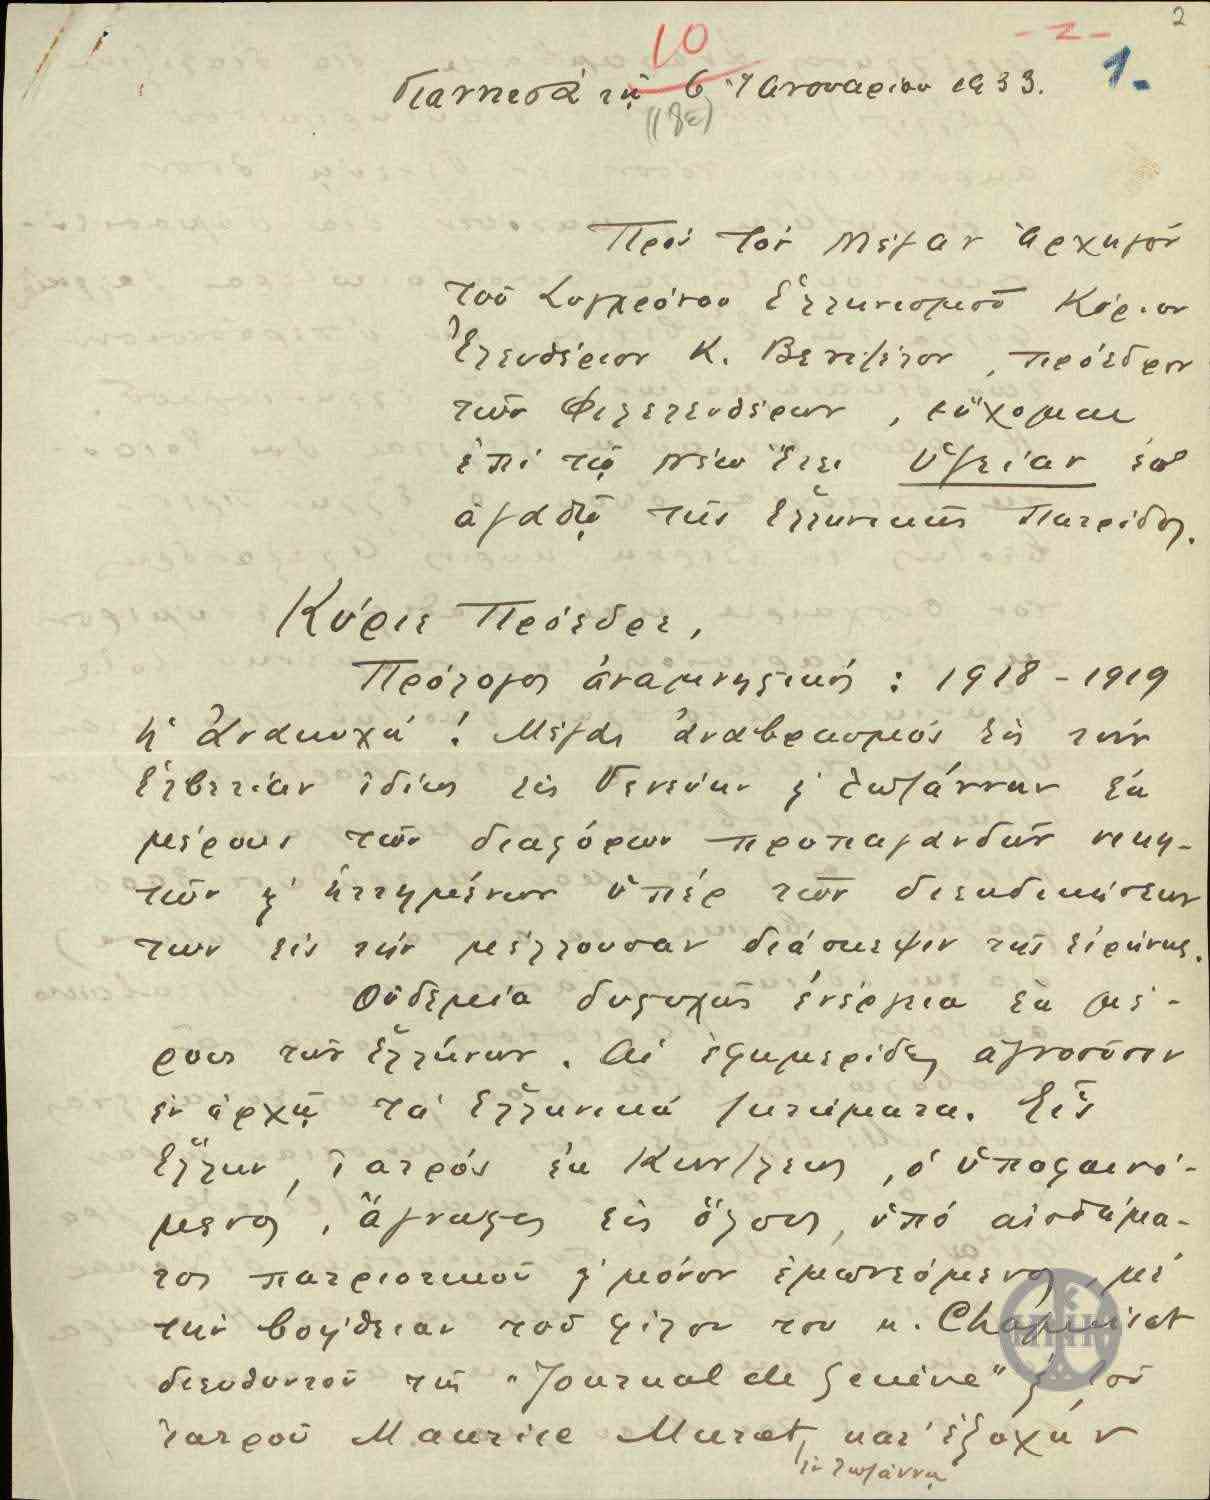 2
10
-2-
1.
Γιαννιτσά τῇ 6 Ἰανουαρίου 1933.
Πρός τόν Μέγαν Ἀρχηγόν
τοῦ Συγχρόνου Ἑλληνισμοῦ Κύριον
Ἐλευθέριον Κ. Βενιζέλον, πρόεδρον
τῶν Φιλελευθέρων, εὔχομαι
ἐπί τῷ Νέῳ Ἔτει Ὑγείαν ἐπ'
ἀγαθῷ τῆς Ἑλληνικῆς Πατρίδος.
Κύριε Πρόεδρε,
Πρόλογος ἀναμνηστικός : 1918-1919
ἡ Ἀνακωχή ! Μέγας ἀναβρασμός εἰς τήν
Ἑλβετίαν ἰδίως εἰς Γενεύην ϗ Λωζάννην ἐκ
μέρους τῶν διαφόρων προπαγανδῶν νικη-
τῶν ϗ ἡττημένων ὑπέρ τῶν διεκδικήσεων
των εἰς τήν μέλλουσαν διάσκεψιν τῆς εἰρήνης.
Οὐδεμία δυστυχῶς ἐνέργεια ἐκ μέ-
ρους τῶν Ἑλλήνων. Αἱ ἐφημερίδες ἀγνοοῦσιν
ἐν ἀρχῇ τά Ἑλληνικά ζητήματα. Εἷς
Ἕλλην, ἰατρός ἐκ Κων/λεως, ὁ ὑποφαινό-
μενος, ἄγνωστος εἰς ὅλους, ὑπό αἰσθήμα-
τος πατριοτικοῦ ϗ μόνον ἐμπνεόμενος, μέ
τήν βοήθειαν τοῦ φίλου του κ. Chapuisat
διευθυντοῦ τῆς "Journal de Genève" ϗ τοῦ
ἰατροῦ Maurice Muret, κατ' ἐξοχήν
ἐν Λωζάννῃ